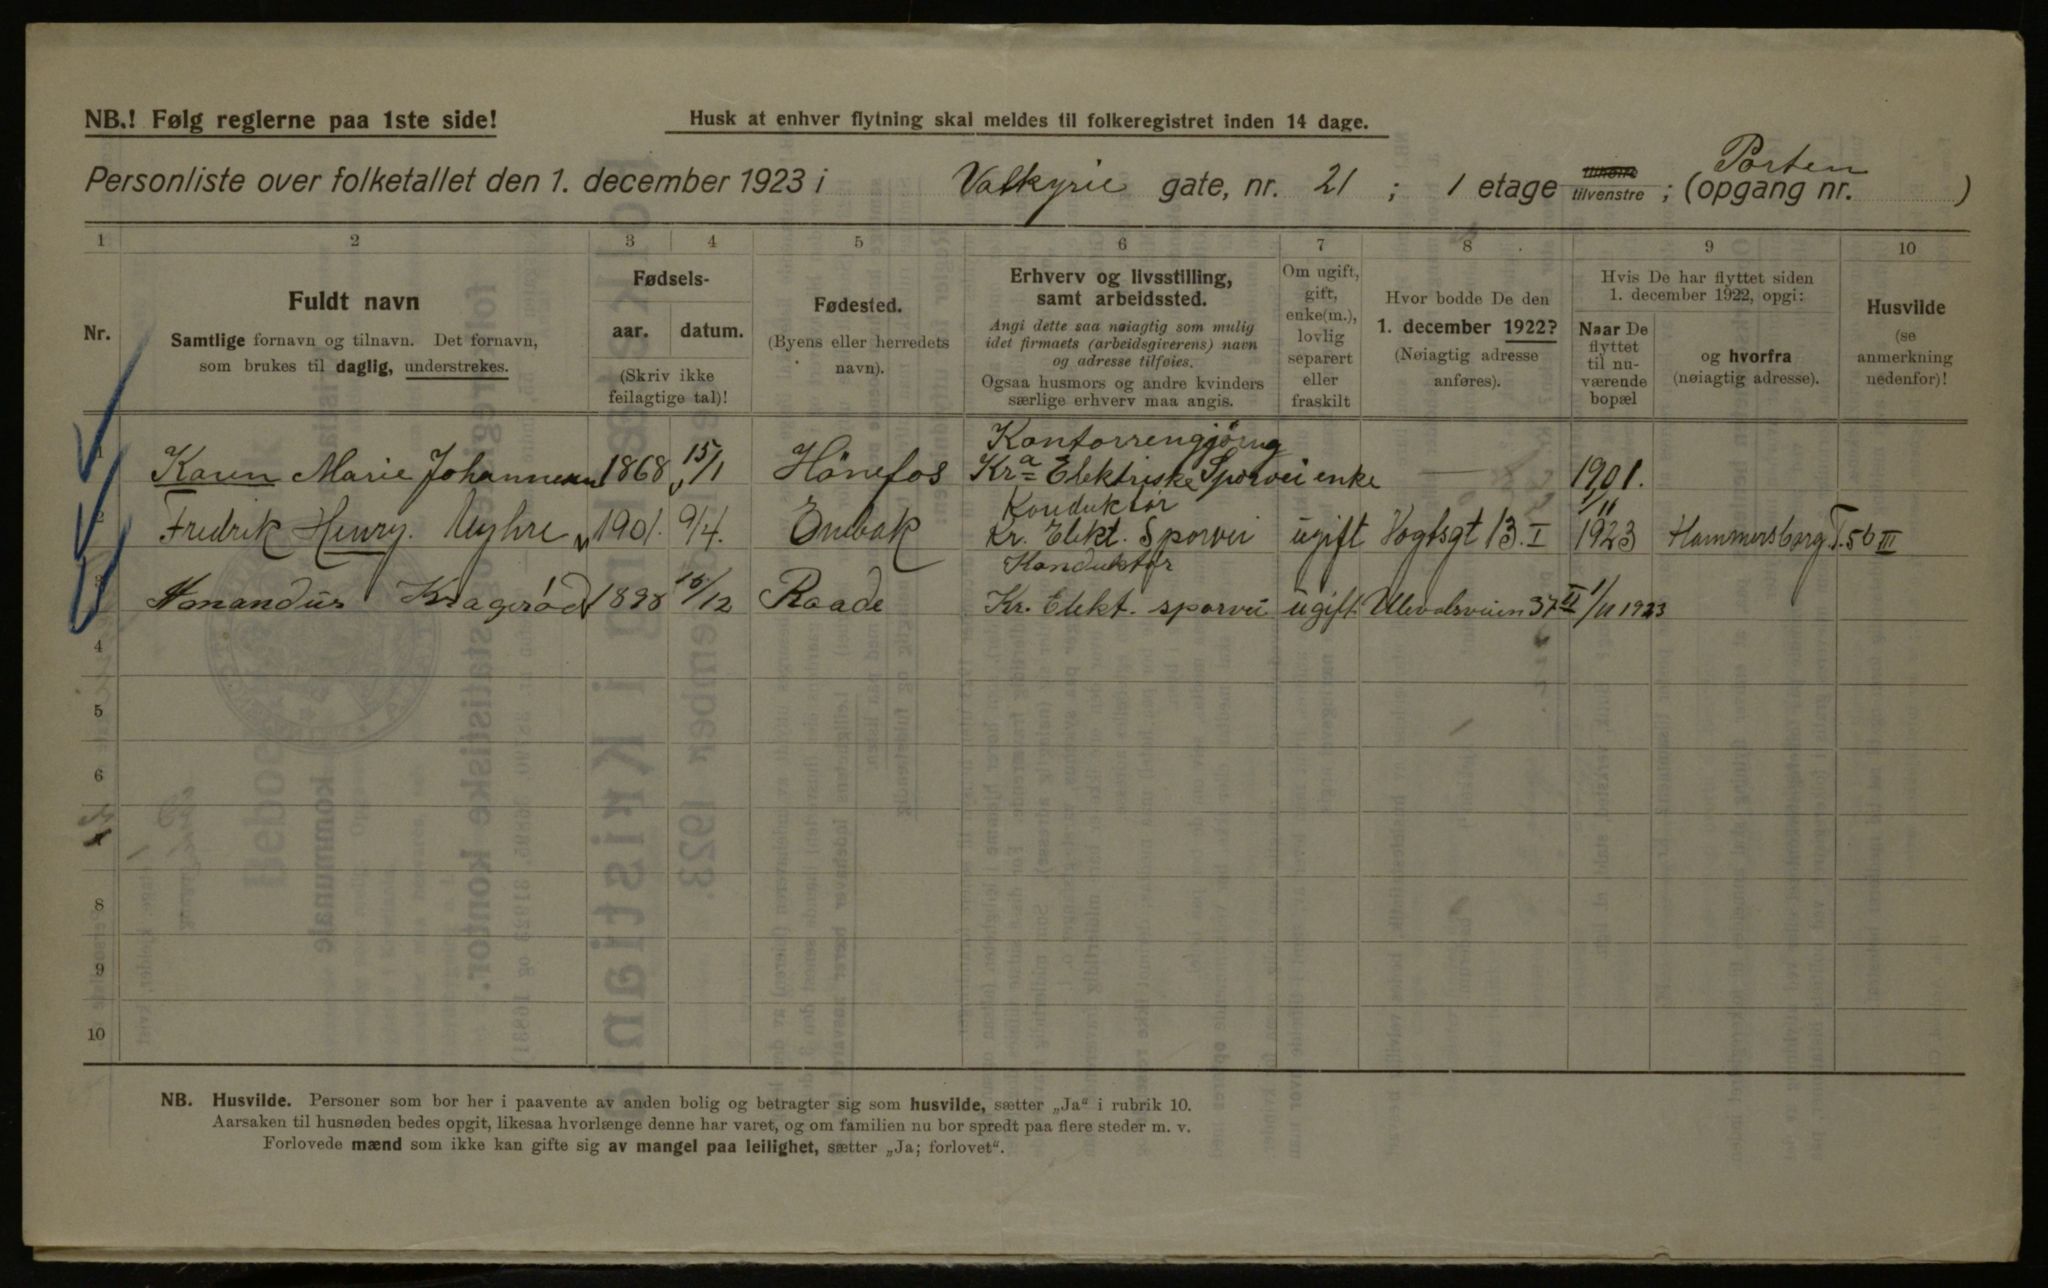 NB.! Følg reglerne paa 1ste side!
Husk at enhver flytning skal meldes til folkeregistret inden 14 dage.
Personliste over folketallet den 1. december 1923 i Valkyrie gate, nr. 21 ; 1 etage tilhøire tilvenstre ; (opgang nr. Porten )
1 2 3 4 5 6 7 8 9 10
Nr.
Fuldt navn
Samtlige fornavn og tilnavn. Det fornavn,
som brukes til daglig, understrekes.
Fødsels-
aar. datum.
(Skriv ikke
feilagtige tal)!
Fødested.
(Byens eller herredets
navn).
Erhverv og livsstilling,
samt arbeidssted.
Angi dette saa nøiagtig som mulig
idet firmaets (arbeidsgiverens) navn
og adresse tilføies.
Ogsaa husmors og andre kvinders
særlige erhverv maa angis.
Om ugift,
gift,
enke(m.),
lovlig
separert
eller
fraskilt
Hvor bodde De den
1. december 1922?
(Nøiagtig adresse
anføres).
Hvis De har flyttet siden
1. december 1922, opgi:
Naar De
flyttet
til nu-
værende
bopæl
og hvorfra
(nøiagtig adresse).
Husvilde
(se
anmerkning
nedenfor)!
Kontorrengjøring
1 Karen Marie Johannesen 1868 15/1 Hönefos Kra Elektriske Sporvei enke — 1901.
Konduktør 1/11
2 Fredrik Henry. Myhre 1901. 9/4. Enebak Kr. Elekt. Sporvei ugift Vogtsgt 13. I 1923 Hammersborg T. 56 III
Konduktør
3 Amandus Kragerød 1898 16/12 Raade Kr. Elekt. sporvei ugift Ullevalsveien 37 II 1/11 1923
4
5
6
7
8
9
10
NB. Husvilde. Personer som bor her i paavente av anden bolig og betragter sig som husvilde, sætter „Ja“ i rubrik 10.
Aarsaken til husnøden bedes opgit, likesaa hvorlænge denne har varet, og om familien nu bor spredt paa flere steder m. v.
Forlovede mænd som ikke kan gifte sig av mangel paa leilighet, sætter „Ja; forlovet“.